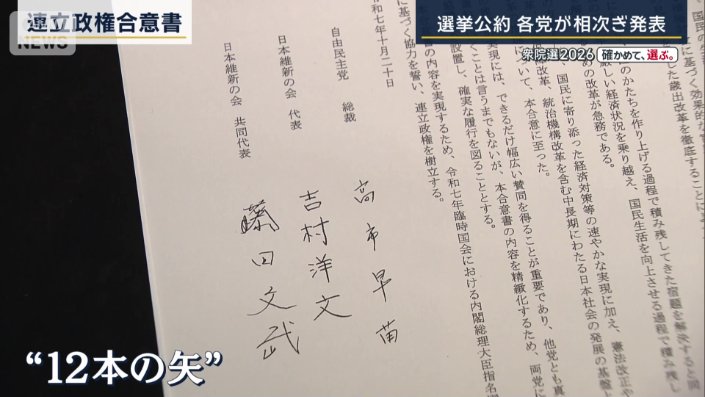 連立政権合意書
NEWS
選挙公約 各党が相次ぎ発表
衆院選2026 確かめて、選ぶ。
国民の生
に基づく効果的な
た歳出改革を徹底することによ
のかたちを作り上げる過程で積み残してきた宿題を解決すると同
厳しい経済状況を乗り越え、国民生活を向上させる過程で積み残し
の改革が急務である。
、国民に寄り添った経済対策等の速やかな実現に加え、憲法改正や
改革、統治機構改革を含む中長期にわたる日本社会の発展の基盤と
について、本合意に至った。
実現には、できるだけ幅広い賛同を得ることが重要であり、他党とも真
くことは言うまでもないが、本合意書の内容を精緻化するため、両党に
設置し、確実な履行を図ることとする。
書の内容を実現するため、令和七年臨時国会における内閣総理大臣指名選
に基づく協力を誓い、連立政権を樹立する。
令和七年十月二十日
自由民主党 総裁
高市早苗
日本維新の会 代表
吉村洋文
日本維新の会 共同代表
藤田文武
“12本の矢”